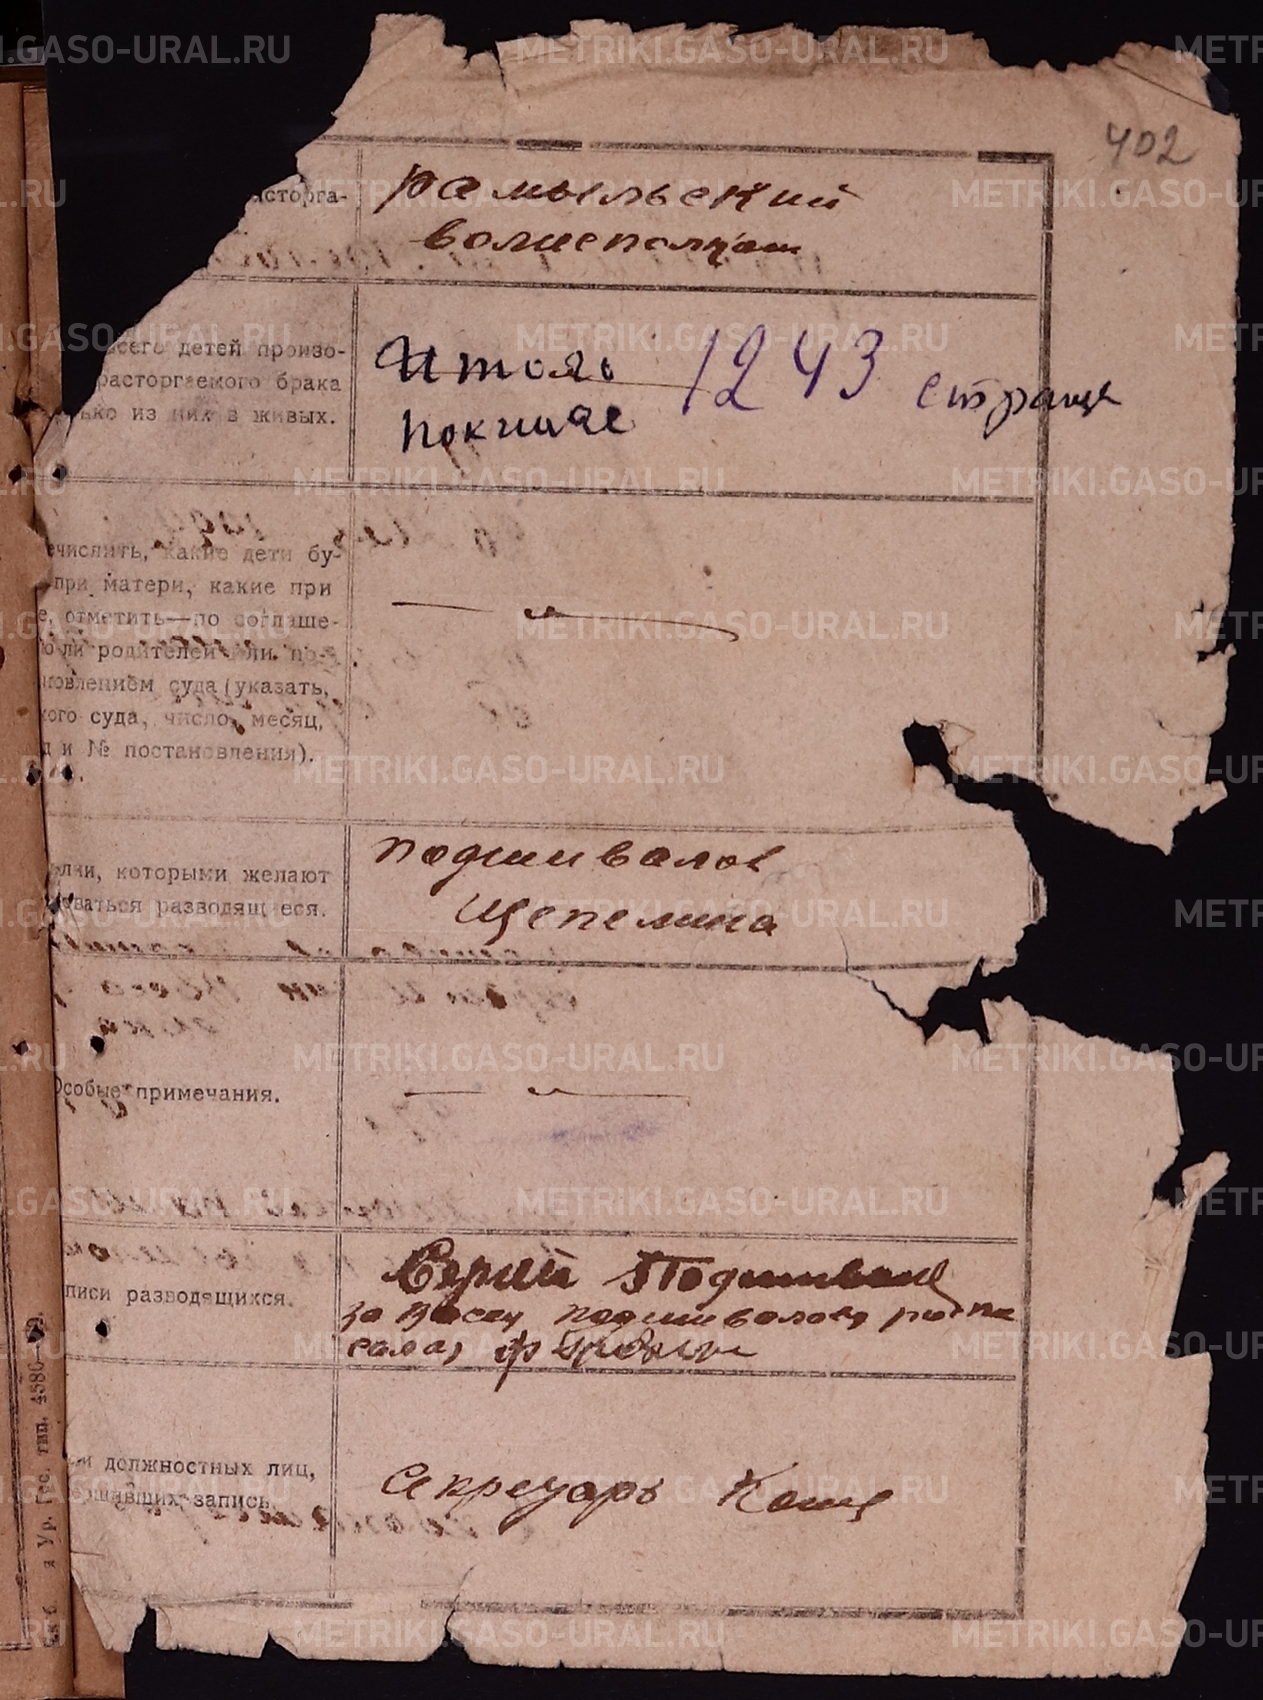 402
асторга-
рамыльский
волисполком
всего детей произо-
расторгаемого брака
лько из них в живых.
Итого 1243 страце
покниге
ечислить, какие дети бу-
при матери, какие при
е, отметить—по соглаше-
ли родителей или по
новлением суда (указать,
кого суда, число, месяц,
д и № постановления).
лии, которыми желают
ваться разводящиеся.
подшивалов
Щепелина
Особые примечания.
писи разводящихся.
Сергей Подшивал
за подшивалову роспи
сала,
и должностных лиц,
ршивших запись.
Секретарь
я Ур. Гос. тип. 4580
METRIKI.GASO-URAL.RU